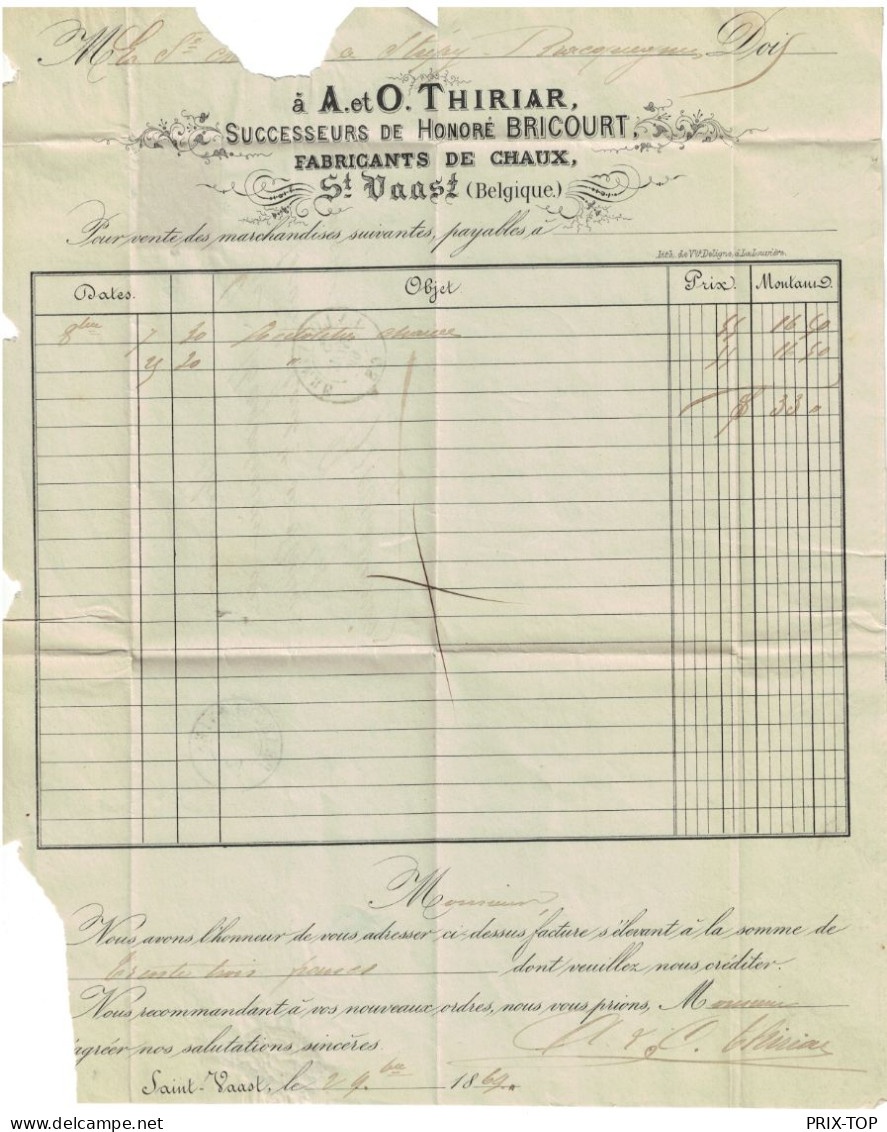 M La Sté à Strépy-Bracquegnies Doit
à A. et O. THIRIAR,
SUCCESSEURS DE HONORÉ BRICOURT,
FABRICANTS DE CHAUX,
St Vaast (Belgique.)
Pour vente des marchandises suivantes, payables à
Lith. de Vve Deligne à La Louvière.
Dates. Objet Prix. Montant.
8bre 7 20 Hectolitres chaux 55 16 50
25 20 " 55 16 50
F 33 0
Monsieur
Nous avons l'honneur de vous adresser ci-dessus, facture s'élevant à la somme de
trente trois francs dont veuillez nous créditer.
Nous recommandant à vos nouveaux ordres, nous vous prions, Monsieur
d'agréer nos salutations sincères.
A & O. Thiriar
Saint-Vaast, le 2 9bre 1869.
PRIX-TOP